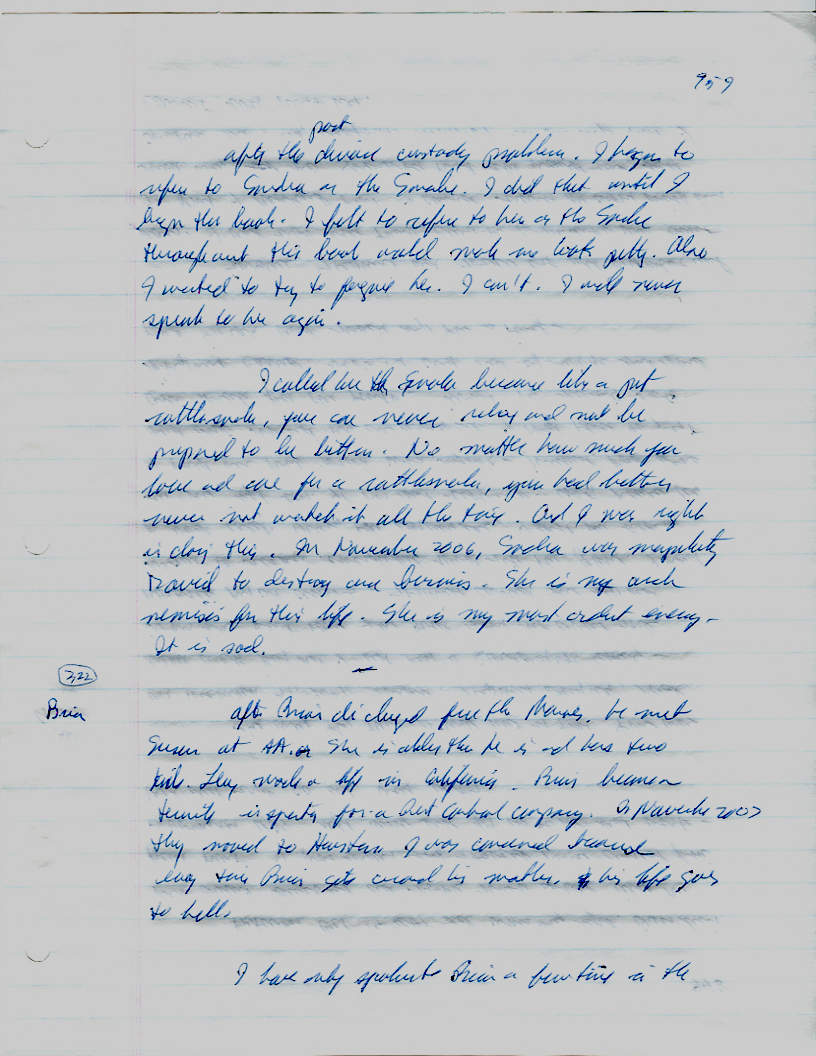 959
post
after the divorce custody problem. I began to
refer to Sondra as the Snake. I did that until I
began this book. I felt to refer to her as the Snake
throughout this book would make me look petty. Also
I wanted to try to forgive her. I can't. I will never
speak to her again.
I called her the Snake because like a pet
rattlesnake, you can never relax and not be
prepared to be bitten. No matter how much you
love and care for a rattlesnake, you had better
never not watch it all the time. And I was right
in doing this. In November 2006, Sondra was
to destroy our business. She is my arch
nemisis for this life. She is my most ardent enemy.
It is sad.
722
Brian
after Brian discharged from the Marines, he met
Susan at AA. She is older than he is and has two
kids. They made a life in California. Brian became
termite inspector for a Pest Control company. In November 2007
they moved to Houston. I was concerned because
every time Brian gets around his mother, his life goes
to hell.
I have only spoken to Brian a few times in the